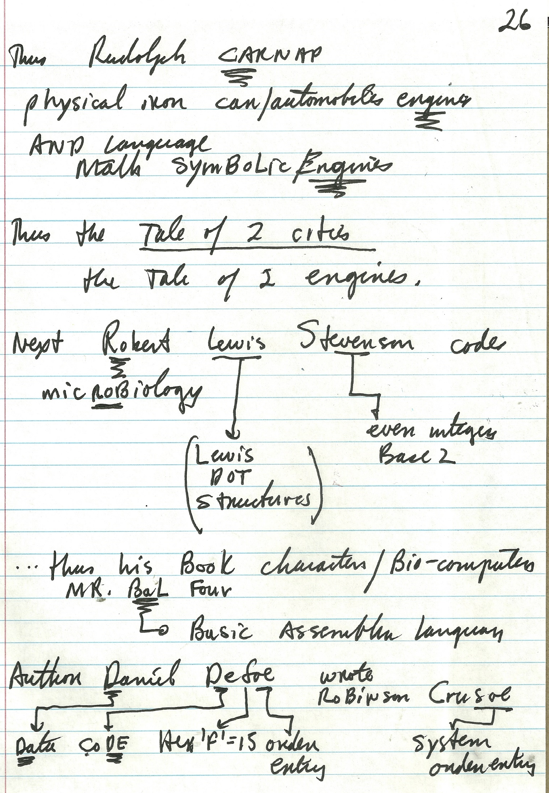 26
Thus Rudolph CARNAP
physical iron car/automobiles engine
AND Language
Math SymBoLic/Engines
Thus the Tale of 2 cities
the Tale of 2 engines.
Next Robert Lewis Stevenson codes
micROBiology
even integer
Base 2
(Lewis
DOT
Structures)
... thus his Book characters/Bio-computers
MR. BaL Four
Basic Assembler Language
Author Daniel Defoe wrote
RoBinson Crusoe
Data CoDE Hex 'F'=15 order
entry
system
order entry